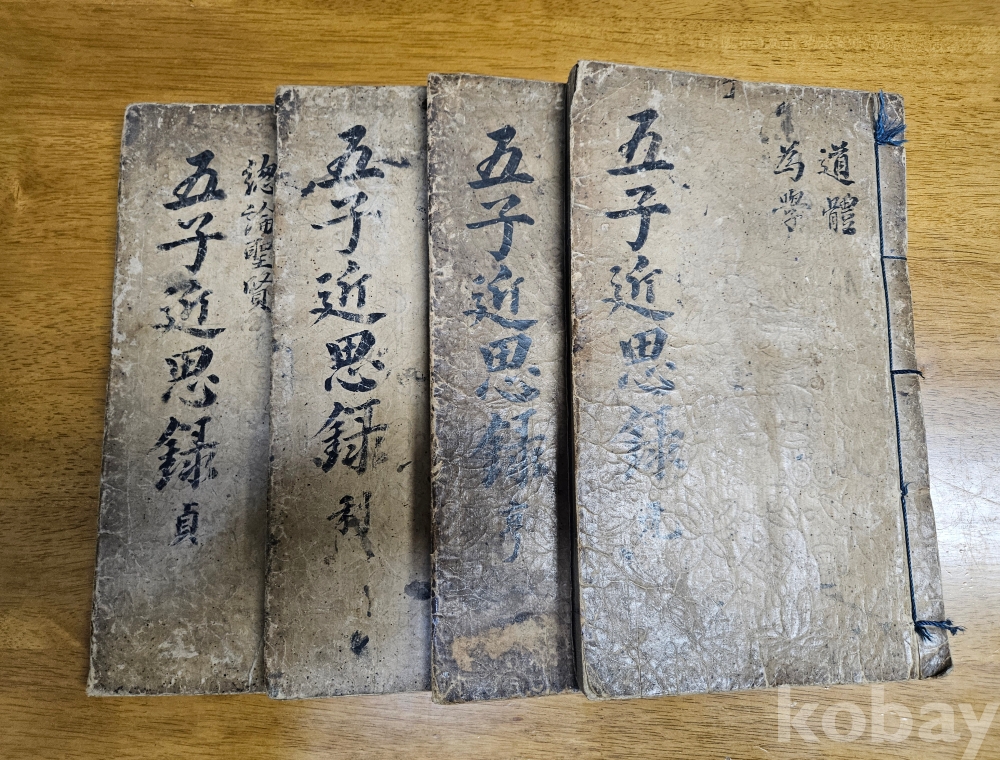 道體
為學
五子近思録 元
五子近思録 亨
五子近思録 利
總論聖賢
五子近思録 貞
kobay